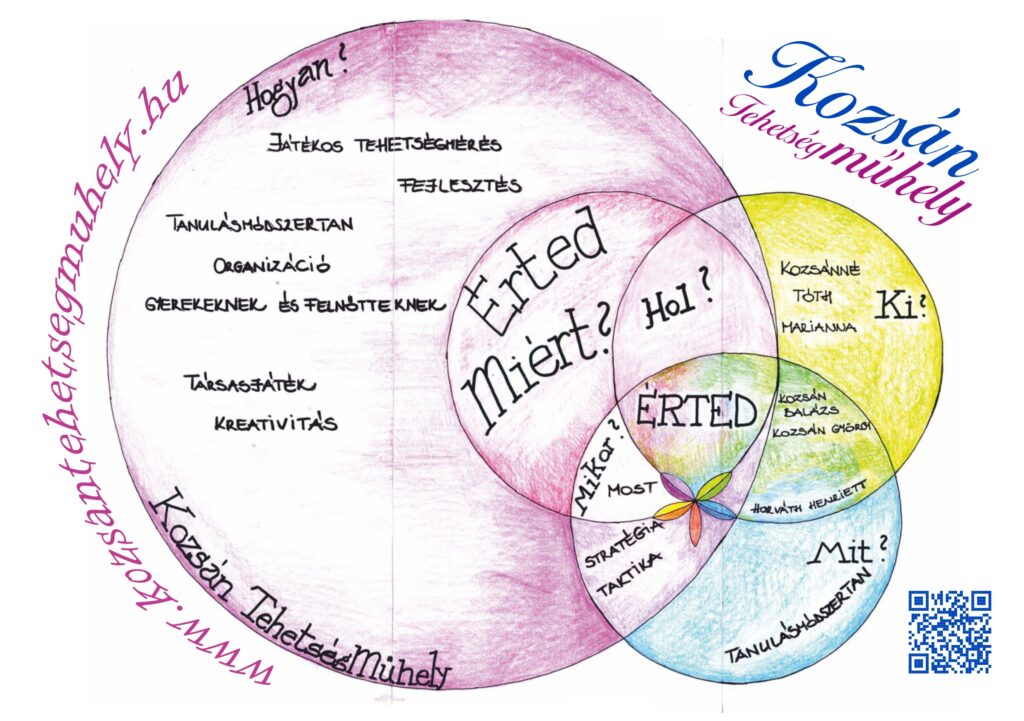 www.kozsantehetsegmuhely.hu
Hogyan?
JÁTÉKOS TEHETSÉGMÉRÉS
FEJLESZTÉS
TANULÁSMÓDSZERTAN
ORGANIZÁCIÓ
GYEREKEKNEK ÉS FELNŐTTEKNEK
TÁRSASJÁTÉK
KREATIVITÁS
Kozsán TehetségMűhely
Érted
Miért?
Hol?
ÉRTED
Mikor?
MOST
STRATÉGIA
TAKTIKA
Kozsán
Tehetségműhely
KOZSÁNNÉ
TÓTH
MARIANNA
Ki?
KOZSÁN
BALÁZS
KOZSÁN GYÖRGY
HORVÁTH HENRIETT
Mit?
TANULÁSMÓDSZERTAN